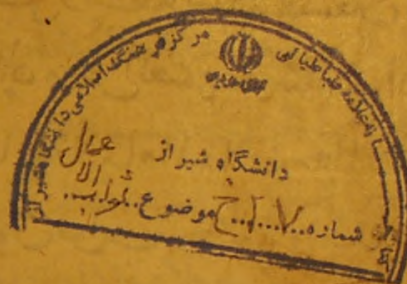 علامه طباطبائی
مرکز فرهنگ اسلامی دانشگاه شیراز
دانشگاه شیراز
شماره موضوع ثواب الاعمال